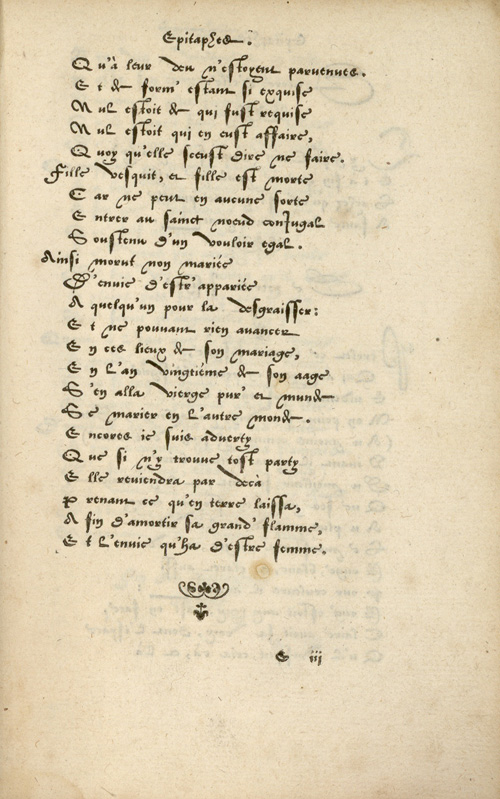 Epitaphes.
Qu'à leur deu n'estoyent paruenues.
Et de form' estant si exquise
Nul estoit de qui fust requise
Nul estoit qui en eust affaire,
Quoy qu'elle sceust dire ne faire.
Fille vesquit, et fille est morte
Car ne peut en aucune sorte
Entrer au sainct noeud conIugal
Soustenu d'un vouloir egal.
Ainsi morut non mariée
D'enuie d'estr' appariée
A quelqu'un pour la desgraisser:
Et ne pouuant rien auancer
En ces lieux de son mariage,
En l'an vingtième de son aage
S'en alla vierge pur' et munde
Se marier en l'autre monde.
Encores ie suis aduerty
Que si n'y trouue tost party
Elle reuiendra par deça
Prenant ce qu'en terre laissa,
Afin d'amortir sa grand' flamme,
Et l'enuie qu'ha d'estre femme.
E iii